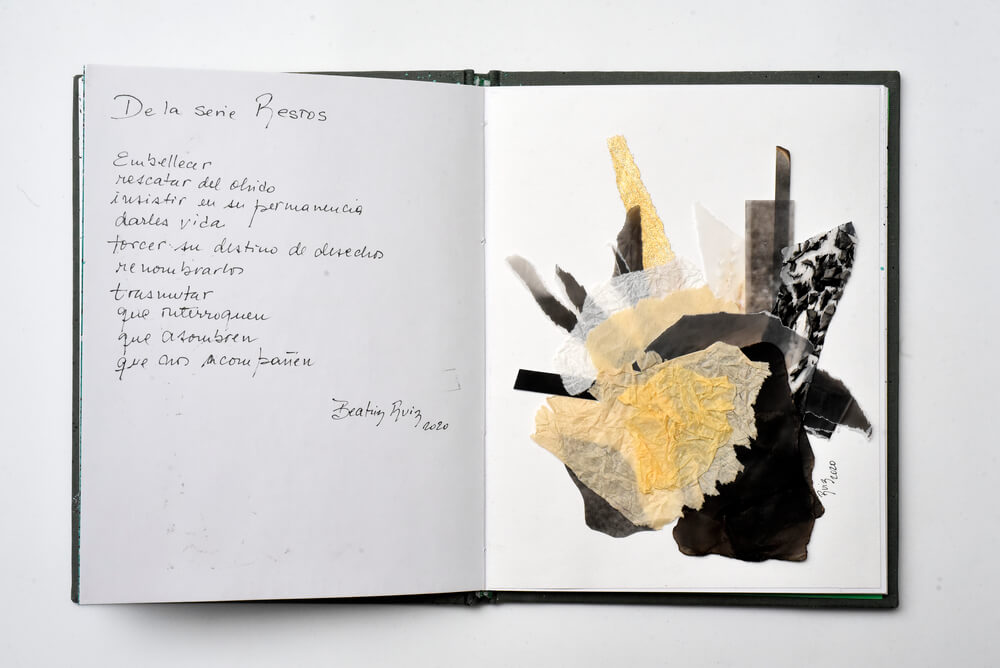 De la serie Restos
Embellecer
rescatar del olvido
insistir en su permanencia
darles vida
torcer su destino de desecho
renombrarlos
trasmutar
que interroguen
que asombren
que nos acompañen
Beatriz Ruiz
2020
Ruiz 2020